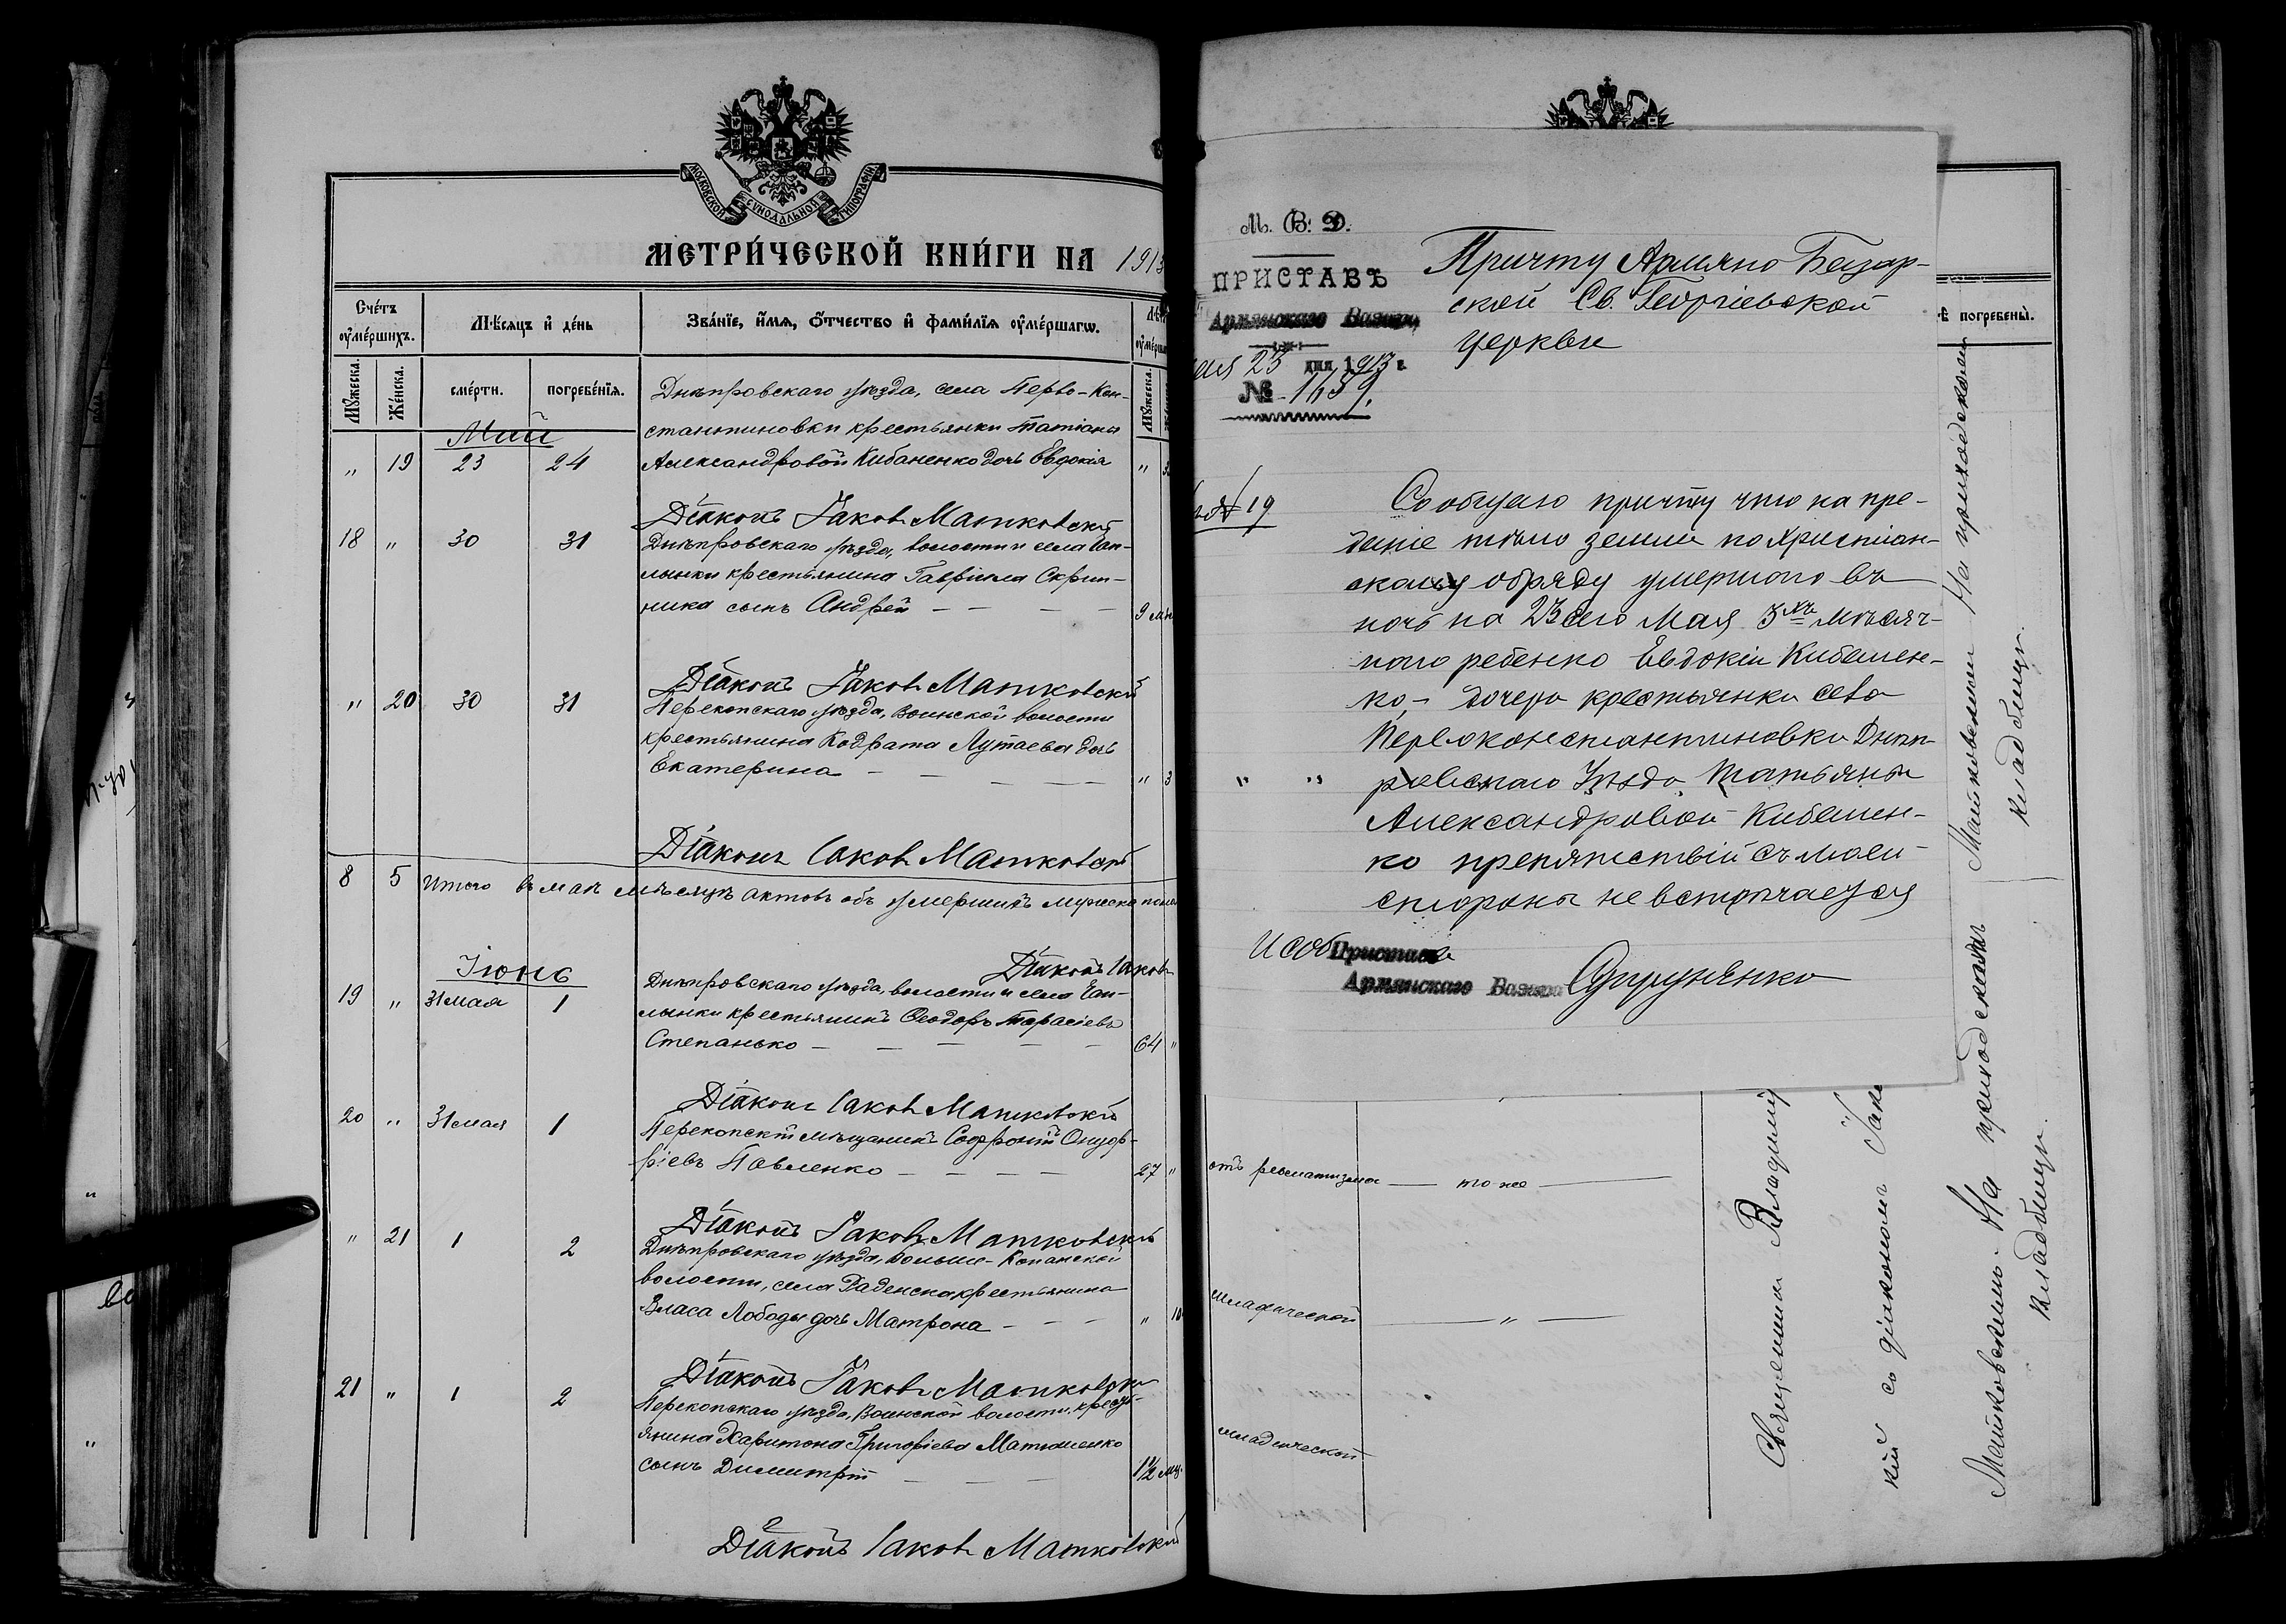 МОСКОВСКОЙ СУНОДАЛЬНОЙ ТИПОГРАФІИ
МЕТРИ́ЧЕСКОЙ КНИ́ГИ НА 1913
Сче́тъ ᲂу҆ме́ршихъ.
Мѣ́сяцъ и҆ де́нь
Зва́нїе, и҆́мя, ѻ҆́тчество и҆ фами́лїя ᲂу҆ме́ршагѡ.
Мꙋ́жеска.
Же́нска.
сме́рти.
погребе́нїя.
Мꙋ́жеска.
Май
Днѣпровскаго уѣзда, села Перво-Кон-
стантиновки крестьянки Татіаны
" 19 23 24 Александровой Кибаненко дочь Евдокія "
Діаконъ Іаковъ Матковскій
18 " 30 31 Днѣпровскаго уѣзда, волости и села Чап-
лынки крестьянина Гавріила Скрип-
ника сынъ Андрей — — — — 9 мѣ
Діаконъ Іаковъ Матковскій
" 20 30 31 Перекопскаго уѣзда, Воинской волости
крестьянина Кодрата Лутаева дочь
Екатерина — — — — " 3
Діаконъ Іаковъ Матковскій
8 5 Итого въ маѣ мѣсяцѣ актовъ объ умершихъ мужска пола
Діаконъ Іаковъ
Іюнь
19 " 31 мая 1 Днѣпровскаго уѣзда, волости и села Чап-
лынки крестьянинъ Ѳеодоръ Тарасіевъ
Степанько — — — — — 64 "
Діаконъ Іаковъ Матковскій
20 " 31 мая 1 Перекопскій мѣщанинъ Софроній Онуф-
ріевъ Павленко — — — — 27 "
Діаконъ Іаковъ Матковскій
" 21 1 2 Днѣпровскаго уѣзда, Больше-Копанской
волости, села Раденска крестьянина
Власа Лободы дочь Матрона — — — " 10
Діаконъ Іаковъ Матковскій
21 " 1 2 Перекопскаго уѣзда, Воинской волости, кресть-
янина Харитона Григоріева Матюшенко
сынъ Димитрій — — — 1½ мц.
Діаконъ Іаковъ Матковскій
М. В. Д.
ПРИСТАВЪ
Армянскаго Базара,
мая 23 дня 1913 г.
№ 1659.
Причту Армяно Базар-
ской Св. Георгіевской
церкви
№ 19
Сообщаю причту что на пре-
даніе тѣла землѣ по христіан-
скому обряду умершаго въ
ночь на 23 сего Мая 3хъ мѣсяч-
наго ребенка Евдокіи Кибален-
ко, - дочери крестьянки села
Первоконстантиновки Днѣп-
ровскаго Уѣзда Татьяны
Александровой Кибален-
ко препятствій съ моей
стороны не встрѣчается
Приставъ
Армянскаго Базара
" "
погребены̀.
отъ ревматизма — то же —
младенческой — " —
младенческой
Священникъ Владимір
кій съ діакономъ Іако
Матковскимъ. На приходскомъ
кладбищѣ.
Матковскимъ На приходскомъ
кладбищѣ.